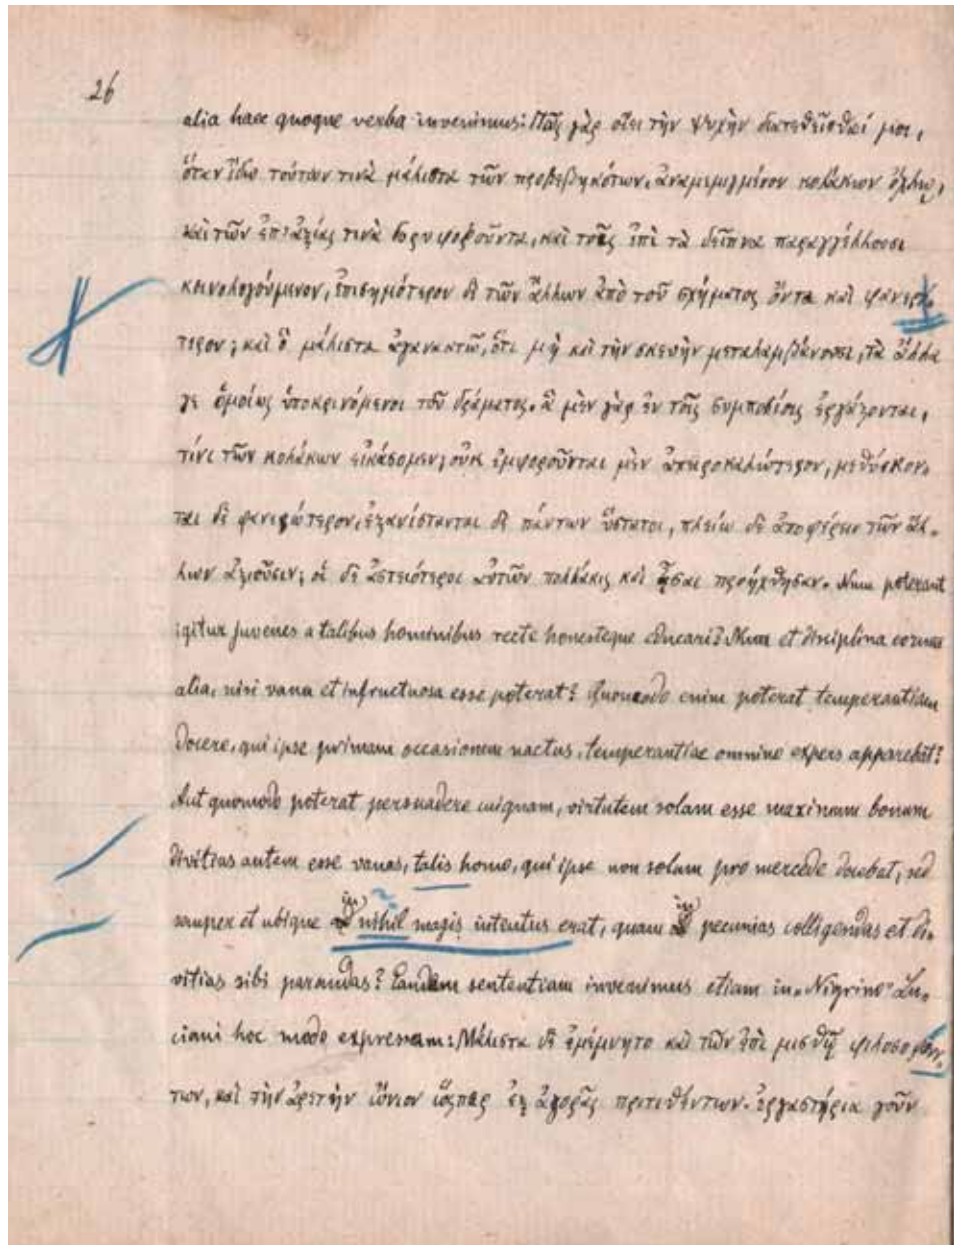 26
alia haec quoque verba invenimus: Πῶς γὰρ οἴει τὴν ψυχὴν διατεθεῖσθαί μοι,
ὅταν ἴδω τούτων τινὰ μάλιστα τῶν προβεβηκότων, ἀναμεμιγμένον κολάκων ὄχλῳ,
καὶ τῶν ἐπ' ἀξίας τινὰ δορυφοροῦντα, καὶ τοῖς ἐπὶ τὰ δεῖπνα παραγγέλλουσι
κοινολογούμενον, ἐπισημότερον δὲ τῶν ἄλλων ἀπὸ τοῦ σχήματος ὄντα καὶ φανερώ
τερον; καὶ ὃ μάλιστα ἀγανακτῶ, ὅτι μὴ καὶ τὴν σκευὴν μεταλαμβάνουσι, τὰ ἄλλα
γε ὁμοίως ὑποκρινόμενοι τοῦ δράματος. ἃ μὲν γὰρ ἐν τοῖς συμποσίοις ἐργάζονται,
τίνι τῶν κολάκων εἰκάσομεν; οὐκ ἐμφοροῦνται μὲν ἀπειροκαλώτερον, μεθύσκον-
ται δὲ φανερώτερον, ἐξανίστανται δὲ πάντων ὕστατοι, πλείω δὲ ἀποφέρειν τῶν ἄλ-
λων ἀξιοῦσιν; οἱ δὲ ἀστειότεροι αὐτῶν πολλάκις καὶ ᾆσαι προήχθησαν. Num poterant
igitur juvenes a talibus hominibus recte honesteque educari? Num et disciplina eorum
alia, nisi vana et infructuosa esse poterat? Quomodo enim poterat temperantiam
docere, qui ipse primam occasionem nactus, temperantiae omnino expers apparebat?
Aut quomodo poterat persuadere cuiquam, virtutem solam esse maximum bonum
divitias autem esse vanas, talis homo, qui ipse non solum pro mercede docebat, sed
semper et ubique in nihil magis intentus erat, quam in pecunias colligendas et di-
vitias sibi parandas? Eandem sententiam invenimus etiam in „Nigrino" Lu-
ciani hoc modo expressam: Μάλιστα δὲ ἐμέμνητο καὶ τῶν ἐπὶ μισθῷ φιλοσοφούν-
των, καὶ τὴν ἀρετὴν ὤνιον ὥσπερ ἐξ ἀγορᾶς προτιθέντων. ἐργαστήρια γοῦν